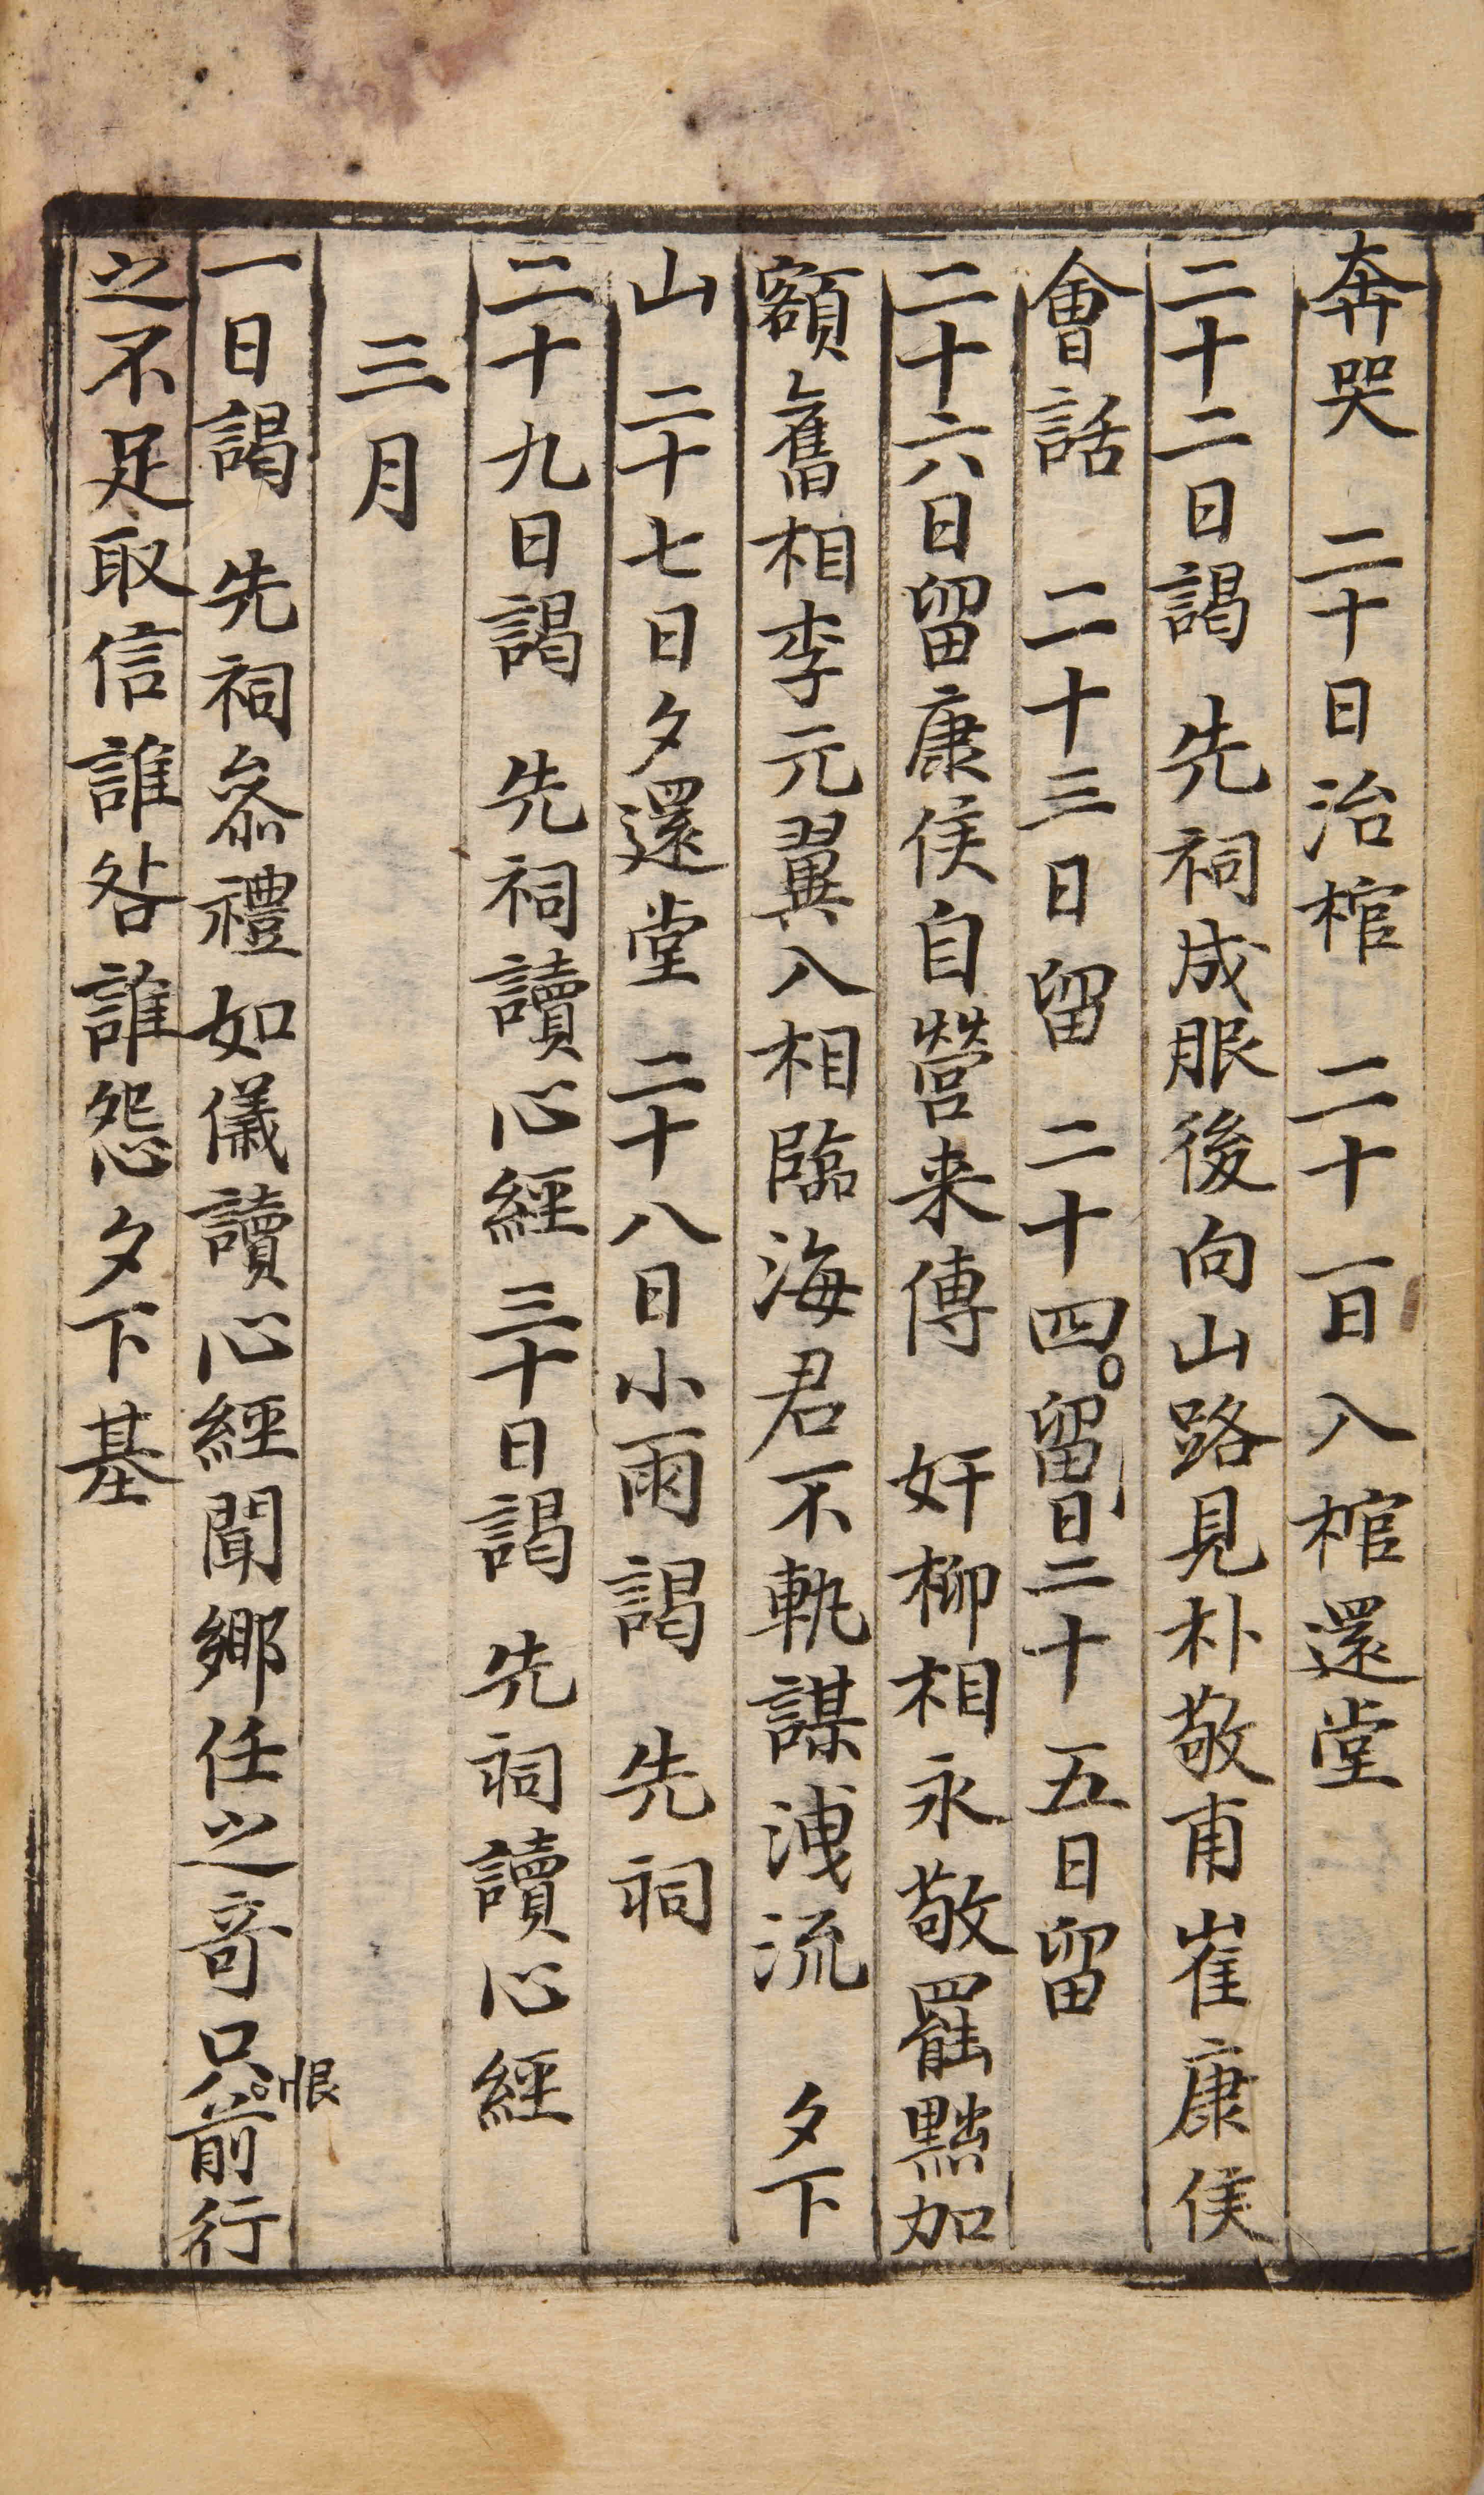 奔哭　二十日治棺　二十一日入棺還堂
二十二日謁　先祠成服後向山路見朴敬甫崔康侯
會話　二十三日留　二十四留日二十五日留
二十六日留康侯自營来傳　奸柳相永敬罷黜加
額舊相李元翼入相臨海君不軌謀洩流　夕下
山　二十七日夕還堂　二十八日小雨謁　先祠
二十九日謁　先祠讀心經　三十日謁　先祠讀心經
三月
一日謁　先祠叅禮如儀讀心經聞鄉任之奇只恨前行
之不足取信誰咎誰怨夕下基